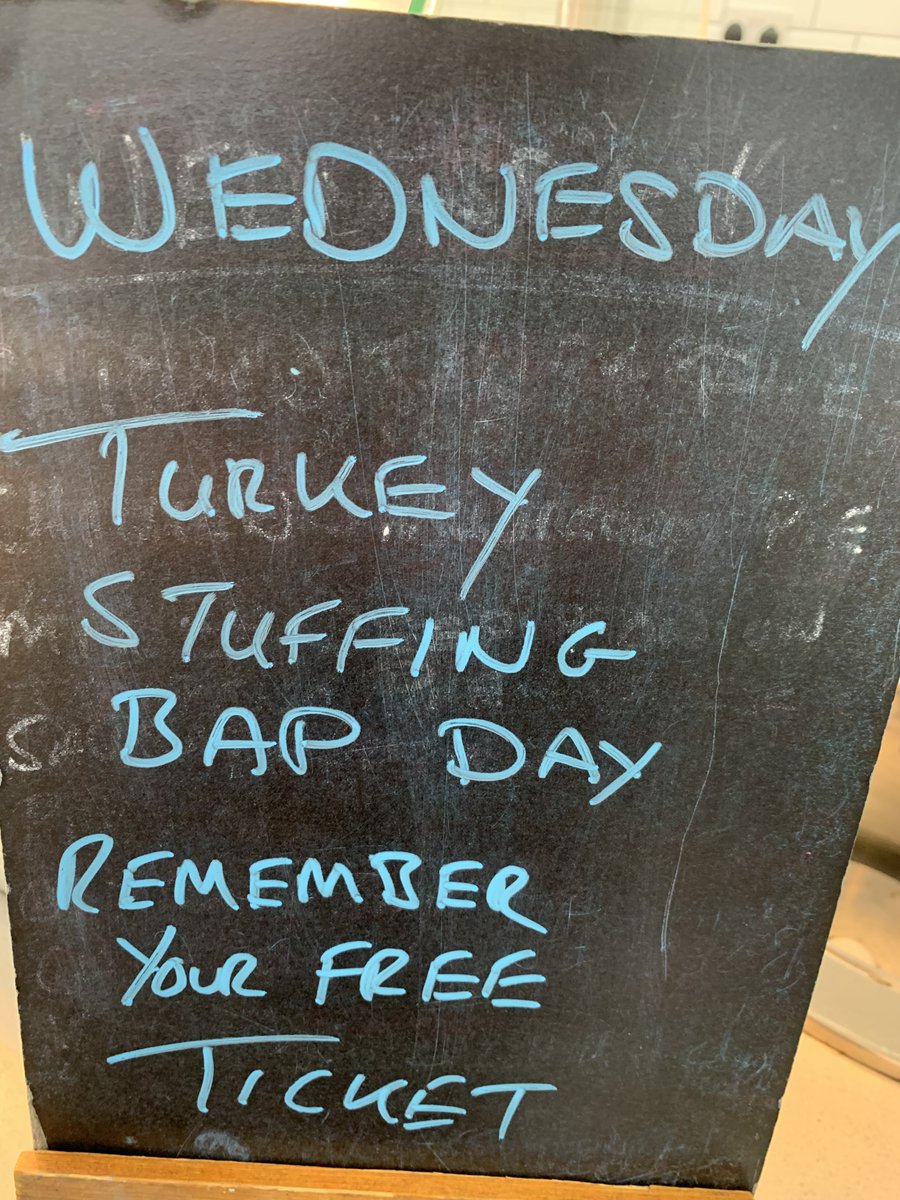 WEDNESDAY
TURKEY
STUFFING
BAP DAY
REMEMBER
YOUR FREE
TICKET